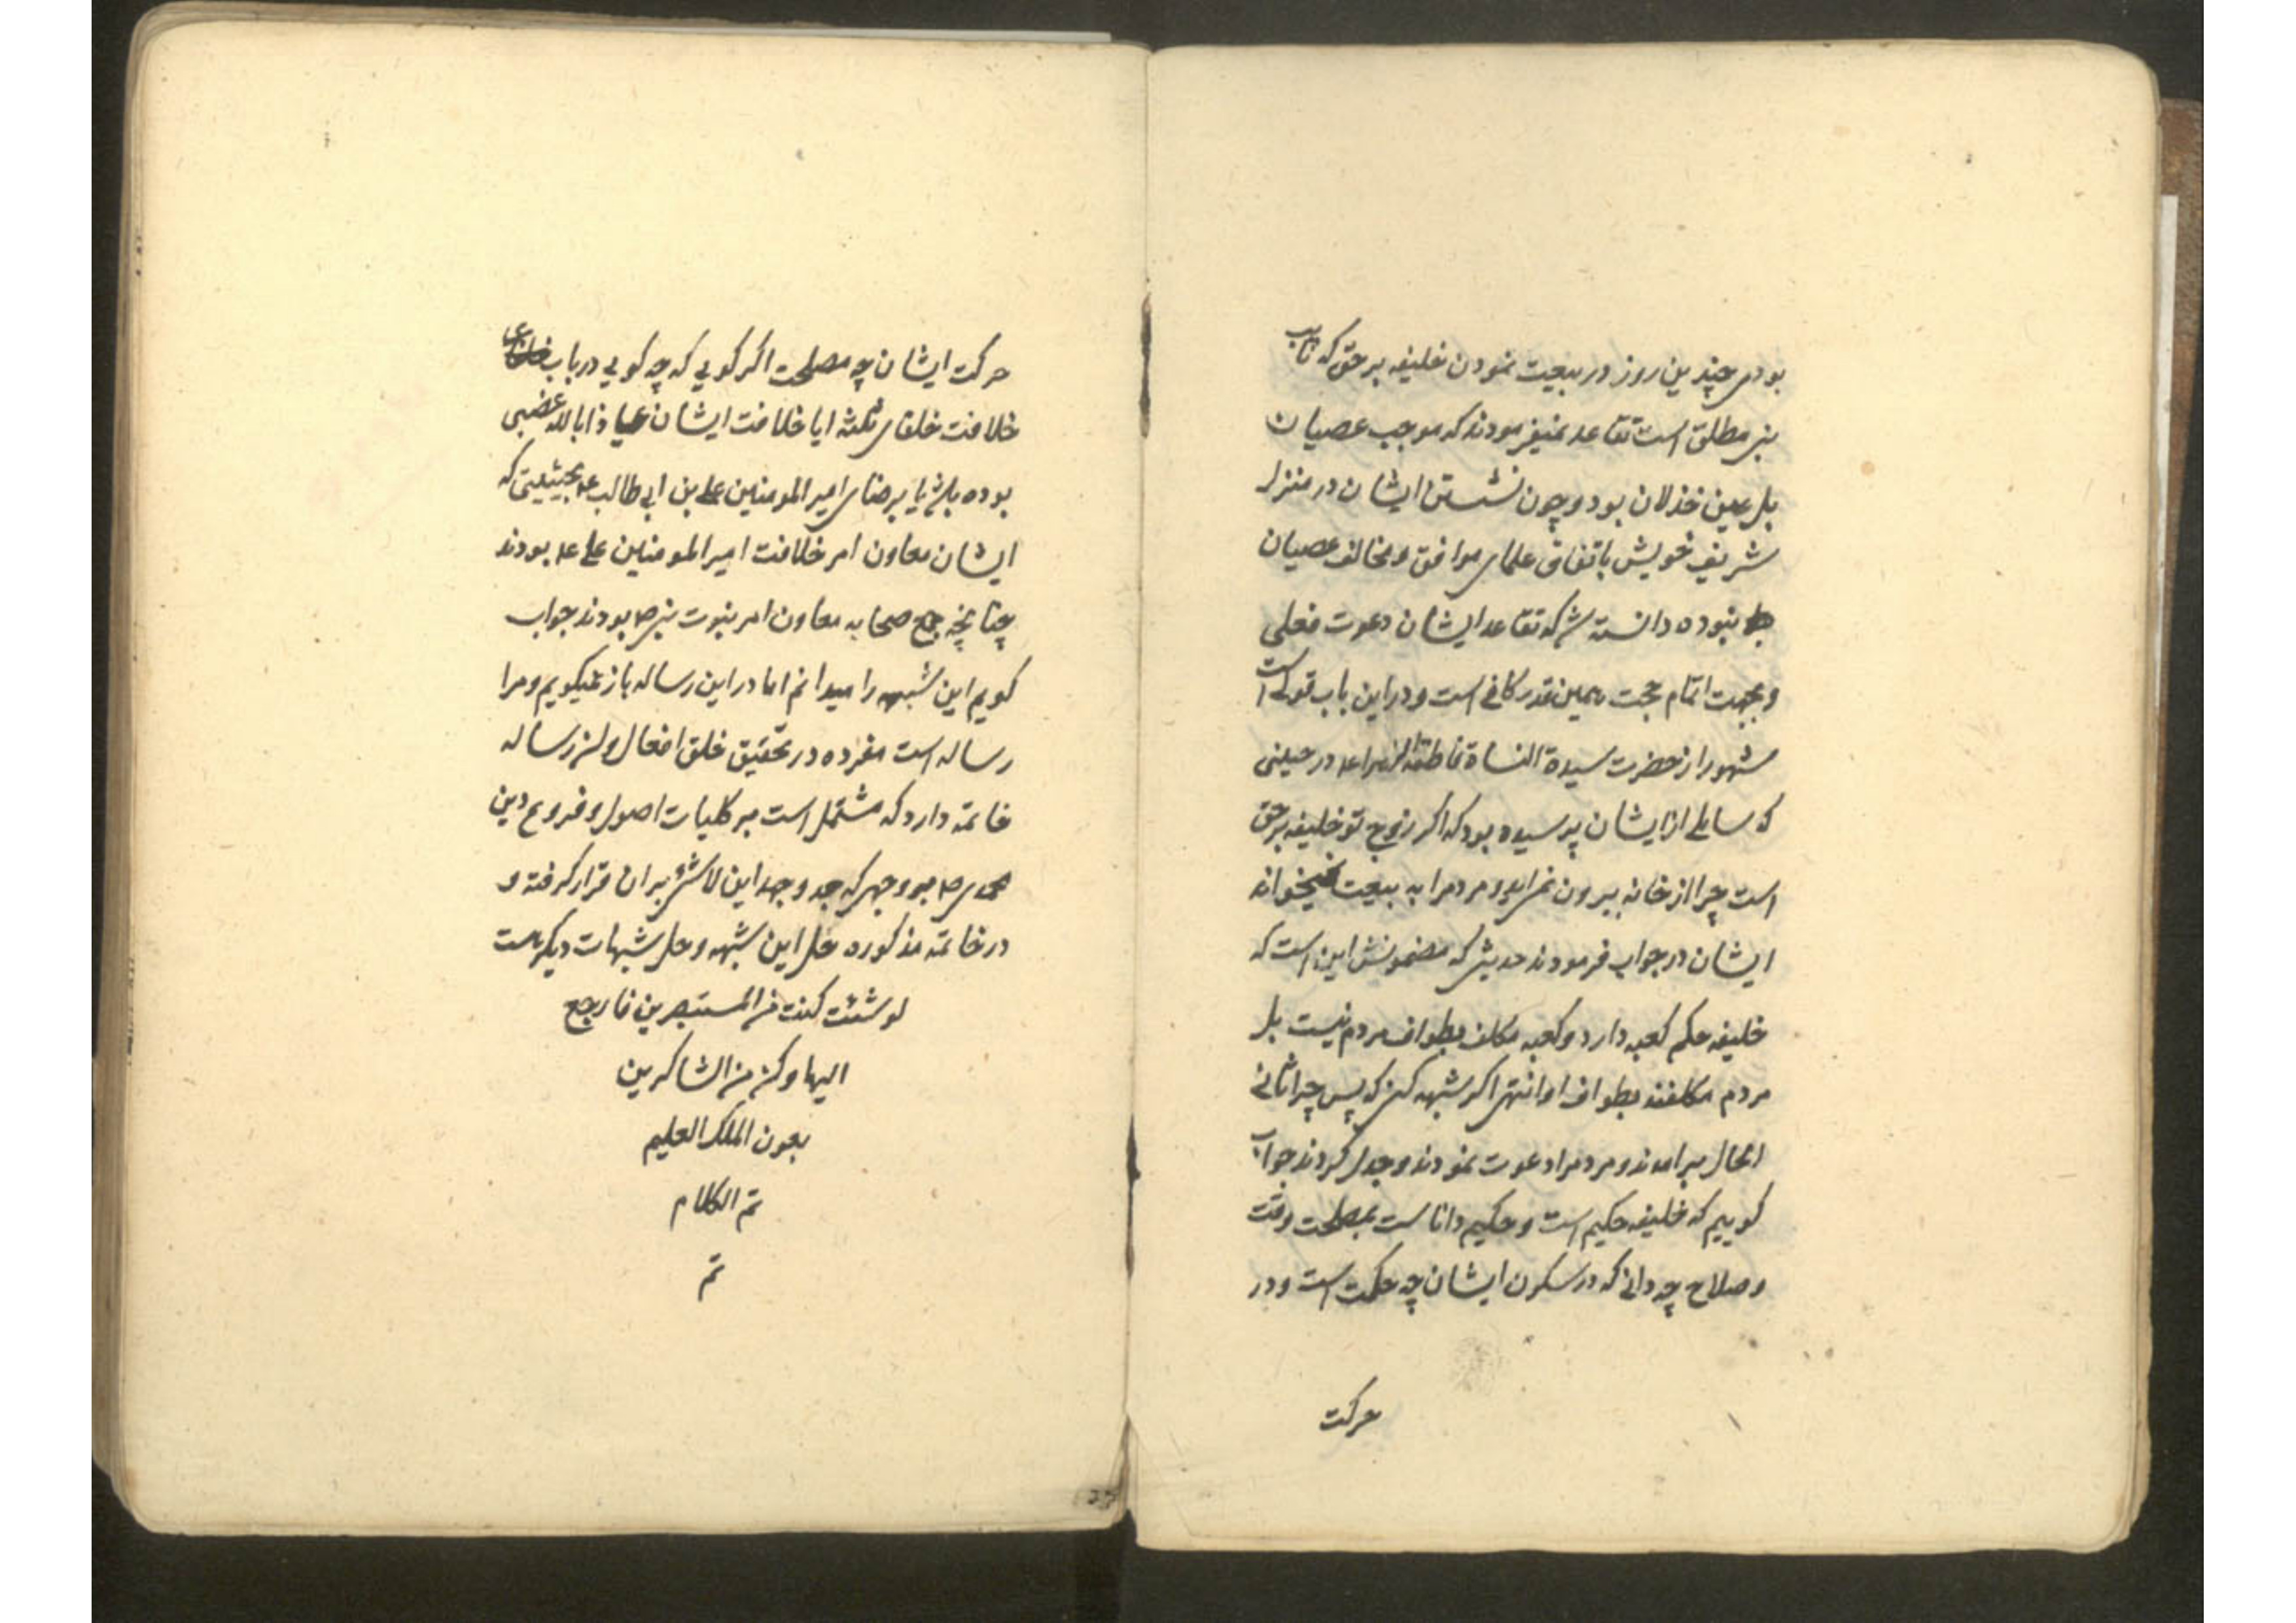 بودی چندین روز در بیعت نمودن خلیفه بر حق که نایب
نبی مطلق است تقاعد نمیفرمودند که موجب عصیان
بل عین خذلان بود و چون نشستن ایشان در منزل
شریف خویش باتفاق علمای موافق و مخالف عصیان
نبوده دانسته شد که تقاعد ایشان دعوت فعلی
و بجهت اتمام حجت همین قدر کافی است و در این باب قولی است
مشهور از حضرت سیدة النساة فاطمة الزهرا عم در حینی
که سایلی از ایشان پرسیده بود که اگر زوج تو خلیفه بر حق
است چرا از خانه بیرون نمی‌اید و مردم را به بیعت نمیخواند
ایشان در جواب فرمودند حدیثی که مضمونش این است که
خلیفه حکم کعبه دارد و کعبه مکلف بطواف مردم نیست بل
مردم مکلفند بطواف او انتهی اکر شبهه کنی که پس چرا ثانی
الحال برامدند و مردم را دعوت نمودند و جدل کردند جواب
کوییم که خلیفه حکیم است و حکیم داناست بمصلحت وقت
و صلاح چه دانی که در سکون ایشان چه حکمت است و در
حرکت
حرکت ایشان چه مصلحت اکر کویی که چه کویی در باب
خلافت خلفای ثلثه ایا خلافت ایشان عیاذا بالله غضبی
بوده بل یا برضای امیر المومنین علی بن ابی طالب عم بحیثیتی که
ایشان معاون امر خلافت امیر المومنین علی عم بودند
چنانچه جمیع صحابه معاون امر نبوت نبی ص بودند جواب
کویم این شبهه را میدانم اما در این رساله باز نمیکویم و مرا
رساله است مفرده در تحقیق خلق افعال و آن رساله
خاتمه دارد که مشتمل است بر کلیات اصول و فروع دین
محمدی ص بوجهی که جد و جهد این لاشئ بران قرار کرفته و
در خاتمه مذکوره حل این شبهه و حل شبهات دیکر است
لو شئت کنت من المستبصرین فارجع
الیها و کن من الشاکرین
بعون الملک العلیم
تم الکلام
تم